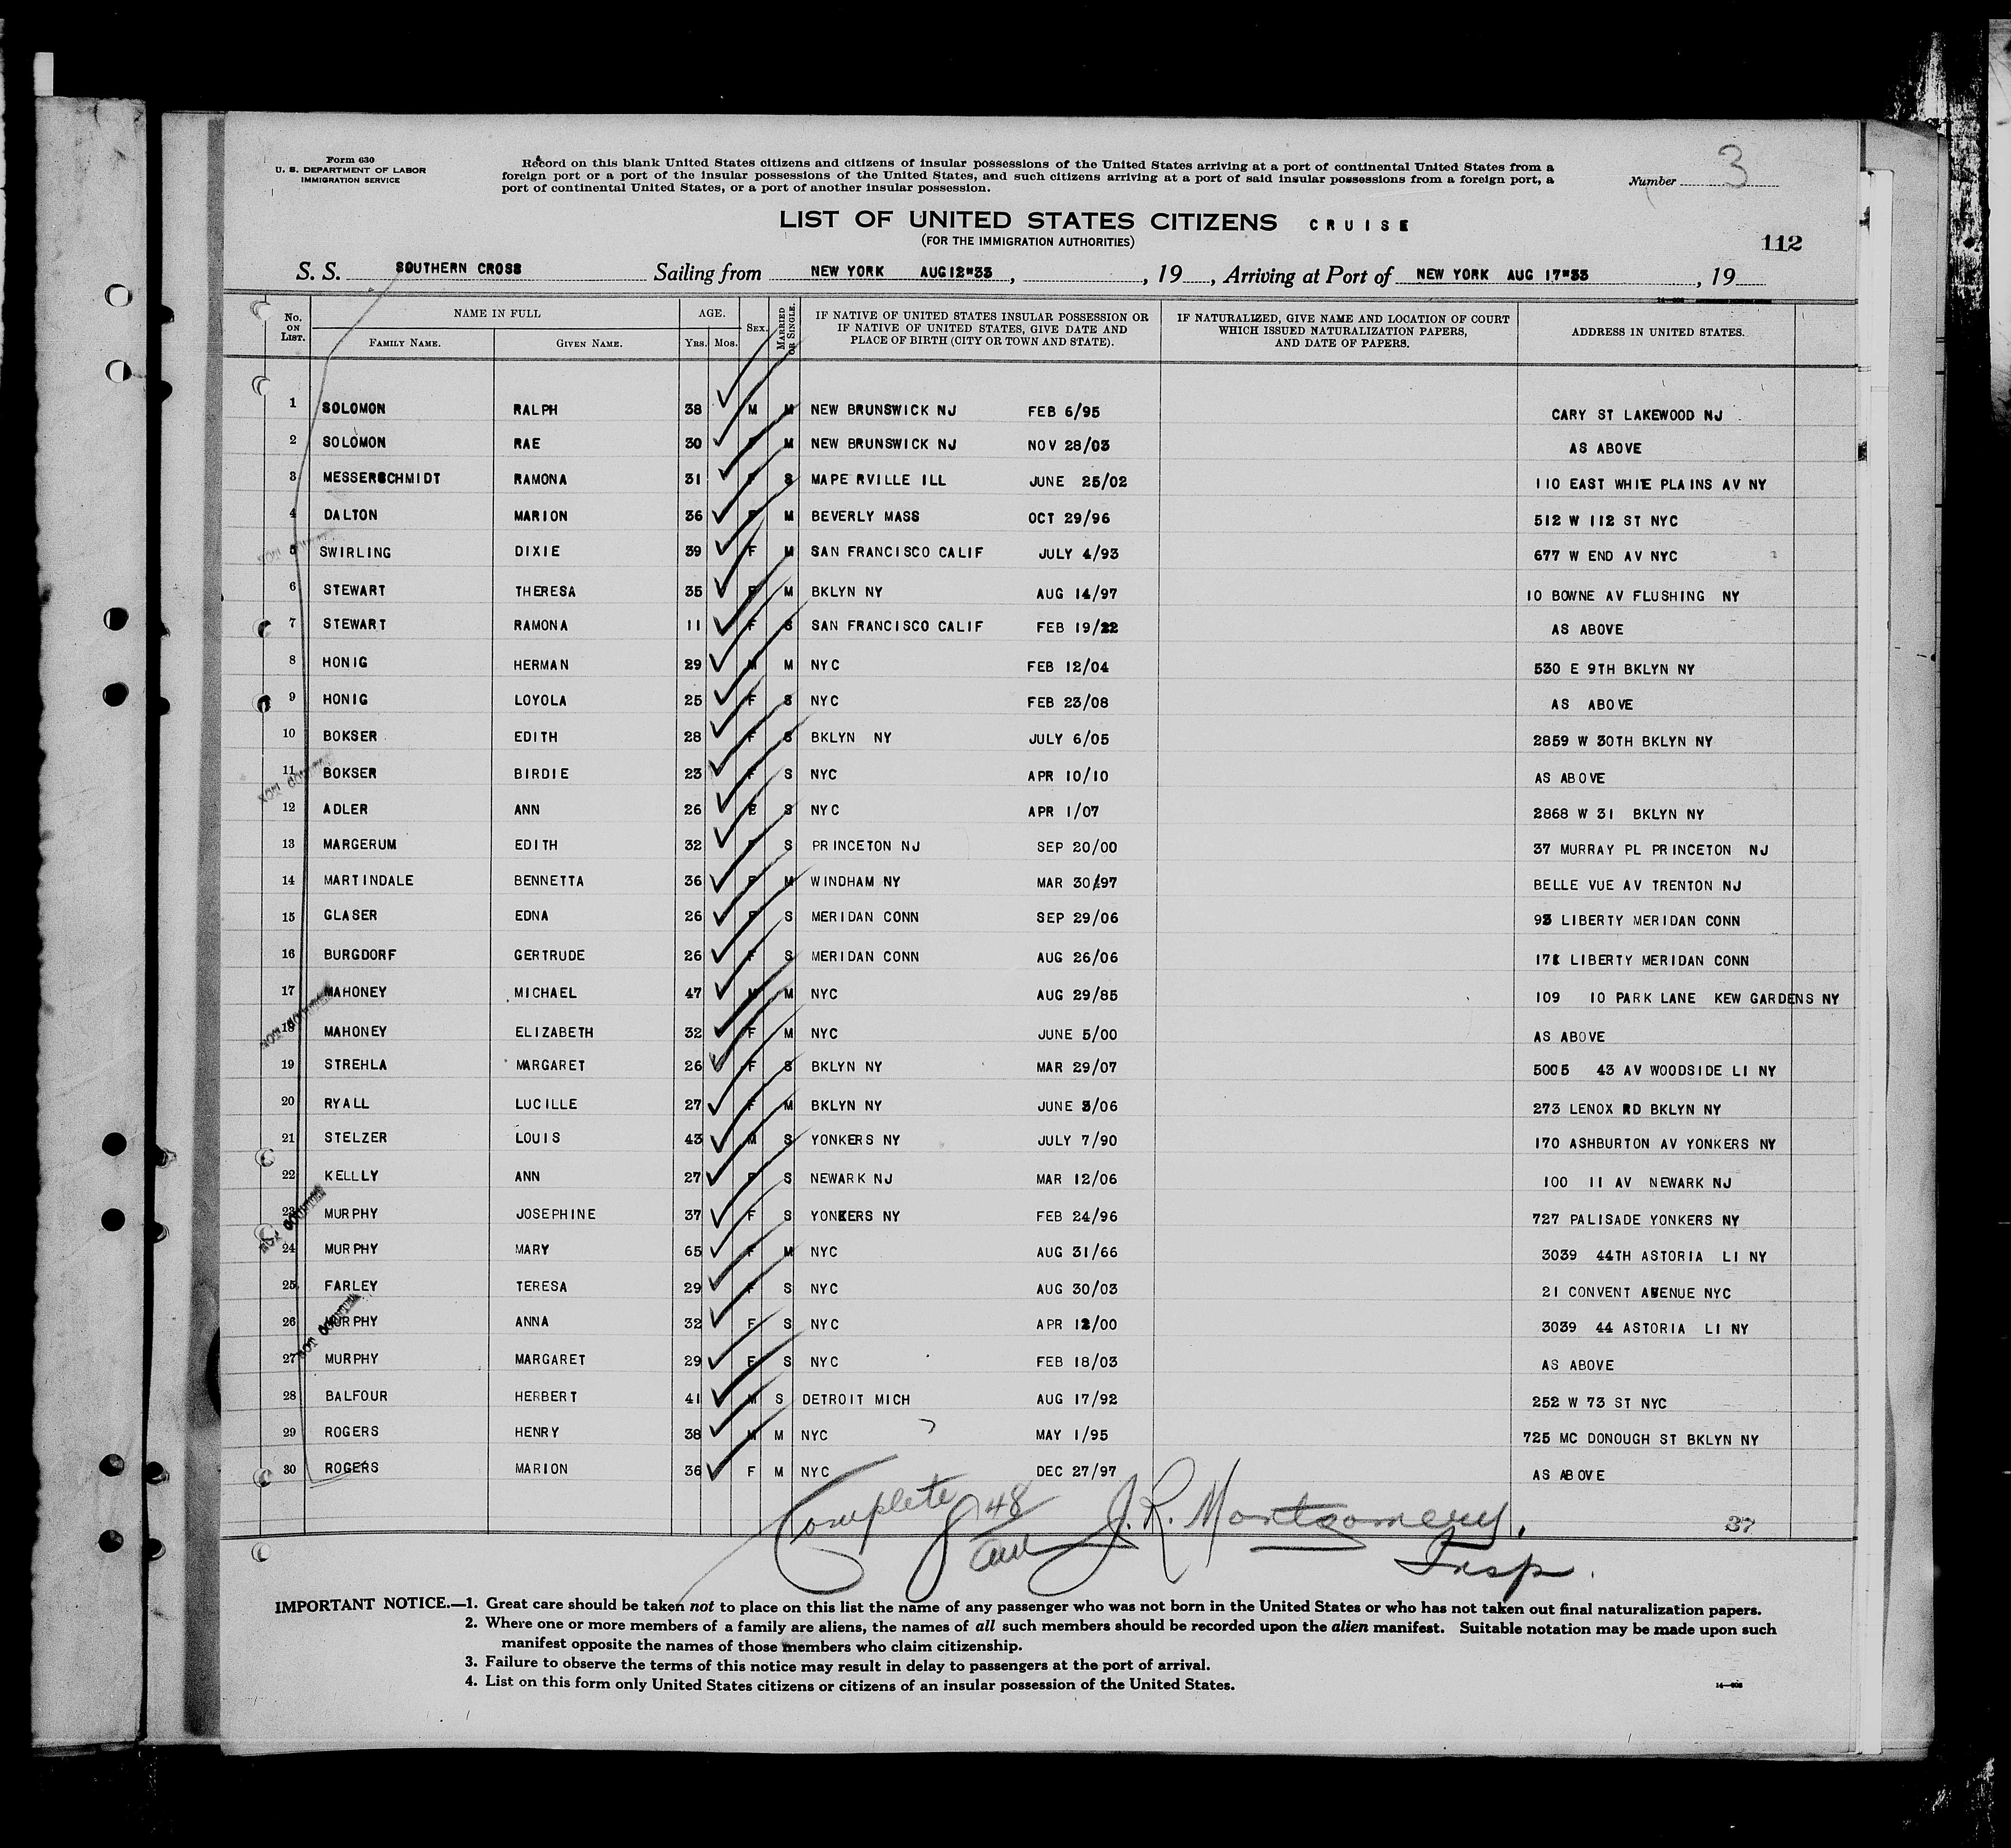 Form 630
U. S. DEPARTMENT OF LABOR
IMMIGRATION SERVICE
Record on this blank United States citizens and citizens of insular possessions of the United States arriving at a port of continental United States from a
foreign port or a port of the insular possessions of the United States, and such citizens arriving at a port of said insular possessions from a foreign port, a
port of continental United States, or a port of another insular possession.
Number 3
LIST OF UNITED STATES CITIZENS CRUISE
(FOR THE IMMIGRATION AUTHORITIES)
112
S. S. SOUTHERN CROSS Sailing from NEW YORK AUG 12"33, , 19 , Arriving at Port of NEW YORK AUG 17"33 , 19
No. ON LIST. NAME IN FULL AGE. SEX. MARRIED OR SINGLE. IF NATIVE OF UNITED STATES INSULAR POSSESSION OR IF NATIVE OF UNITED STATES, GIVE DATE AND PLACE OF BIRTH (CITY OR TOWN AND STATE). IF NATURALIZED, GIVE NAME AND LOCATION OF COURT WHICH ISSUED NATURALIZATION PAPERS, AND DATE OF PAPERS. ADDRESS IN UNITED STATES.
FAMILY NAME. GIVEN NAME. YRS. MOS.
1 SOLOMON RALPH 38 M M NEW BRUNSWICK NJ FEB 6/95 CARY ST LAKEWOOD NJ
2 SOLOMON RAE 30 F M NEW BRUNSWICK NJ NOV 28/03 AS ABOVE
3 MESSERSCHMIDT RAMONA 31 F S MAPE RVILLE ILL JUNE 25/02 110 EAST WHITE PLAINS AV NY
4 DALTON MARION 36 F M BEVERLY MASS OCT 29/96 512 W 112 ST NYC
5 SWIRLING DIXIE 39 F M SAN FRANCISCO CALIF JULY 4/93 677 W END AV NYC
6 STEWART THERESA 35 F M BKLYN NY AUG 14/97 10 BOWNE AV FLUSHING NY
7 STEWART RAMONA 11 F S SAN FRANCISCO CALIF FEB 19/22 AS ABOVE
8 HONIG HERMAN 29 M M NYC FEB 12/04 530 E 9TH BKLYN NY
9 HONIG LOYOLA 25 F S NYC FEB 23/08 AS ABOVE
10 BOKSER EDITH 28 F S BKLYN NY JULY 6/05 2859 W 30TH BKLYN NY
11 BOKSER BIRDIE 23 F S NYC APR 10/10 AS ABOVE
12 ADLER ANN 26 F S NYC APR 1/07 2868 W 31 BKLYN NY
13 MARGERUM EDITH 32 F S PRINCETON NJ SEP 20/00 37 MURRAY PL PRINCETON NJ
14 MARTINDALE BENNETTA 36 F M WINDHAM NY MAR 30/97 BELLE VUE AV TRENTON NJ
15 GLASER EDNA 26 F S MERIDAN CONN SEP 29/06 93 LIBERTY MERIDAN CONN
16 BURGDORF GERTRUDE 26 F S MERIDAN CONN AUG 26/06 171 LIBERTY MERIDAN CONN
17 MAHONEY MICHAEL 47 M M NYC AUG 29/85 109 10 PARK LANE KEW GARDENS NY
18 MAHONEY ELIZABETH 32 F M NYC JUNE 5/00 AS ABOVE
19 STREHLA MARGARET 26 F S BKLYN NY MAR 29/07 5005 43 AV WOODSIDE LI NY
20 RYALL LUCILLE 27 F M BKLYN NY JUNE 3/06 273 LENOX RD BKLYN NY
21 STELZER LOUIS 43 M S YONKERS NY JULY 7/90 170 ASHBURTON AV YONKERS NY
22 KELLLY ANN 27 F S NEWARK NJ MAR 12/06 100 11 AV NEWARK NJ
23 MURPHY JOSEPHINE 37 F S YONKERS NY FEB 24/96 727 PALISADE YONKERS NY
24 MURPHY MARY 65 F M NYC AUG 31/66 3039 44TH ASTORIA LI NY
25 FARLEY TERESA 29 F S NYC AUG 30/03 21 CONVENT AVENUE NYC
26 MURPHY ANNA 32 F S NYC APR 12/00 3039 44 ASTORIA LI NY
27 MURPHY MARGARET 29 F S NYC FEB 18/03 AS ABOVE
28 BALFOUR HERBERT 41 M S DETROIT MICH AUG 17/92 252 W 73 ST NYC
29 ROGERS HENRY 38 M M NYC MAY 1/95 725 MC DONOUGH ST BKLYN NY
30 ROGERS MARION 36 F M NYC DEC 27/97 AS ABOVE
NOT COUNTED
Complete 48 J. R. Montgomery,
Insp.
37
IMPORTANT NOTICE.—1. Great care should be taken not to place on this list the name of any passenger who was not born in the United States or who has not taken out final naturalization papers.
2. Where one or more members of a family are aliens, the names of all such members should be recorded upon the alien manifest. Suitable notation may be made upon such
manifest opposite the names of those members who claim citizenship.
3. Failure to observe the terms of this notice may result in delay to passengers at the port of arrival.
4. List on this form only United States citizens or citizens of an insular possession of the United States.